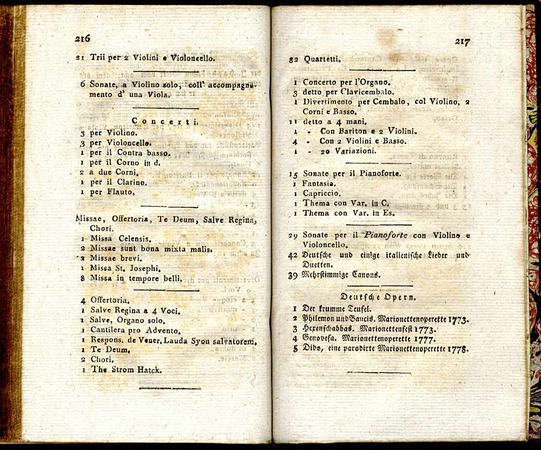 216
21 Trii per 2 Violini e Violoncello.
6 Sonate, a Violino solo, coll' accompagna-
mento d' una Viola.
Concerti.
3 per Violino.
3 per Violoncello.
1 per il Contra basso.
1 per il Corno in d.
2 a due Corni,
1 per il Clarino.
1 per Flauto,
Missae, Offertoria, Te Deum, Salve Regina,
Chori.
1 Missa Celensis.
2 Missae sunt bona mixta malis.
2 Missae brevi.
1 Missa St. Josephi.
8 Missa in tempore belli.
4 Offertoria,
1 Salve Regina a 4 Voci,
1 Salve, Organo solo,
1 Cantilera pro Advento,
1 Respons. de Vener, Lauda Syon salvatorem,
1 Te Deum,
2 Chori,
1 The Strom Hatck.
217
82 Quartetti.
1 Concerto per l'Organo.
3 detto per Clavicembalo.
1 Divertimento per Cembalo, col Violino, 2
Corni e Basso,
11 detto a 4 mani,
1 - Con Bariton e 2 Violini.
4 - Con 2 Violini e Basso.
1 - 20 Variazioni.
15 Sonate per il Pianoforte.
1 Fantasia.
1 Capriccio.
1 Thema con Var. in C.
1 Thema con Var. in Es.
29 Sonate per il Pianoforte con Violino e
Violoncello.
42 Deutsche und einige italienische Lieder und
Duetten.
39 Mehrstimmige Canons.
Deutsche Opern.
1 Der krumme Teufel.
2 Philemon und Baucis. Marionettenoperette 1773.
3 Hexenschabbas. Marionettenfest 1773.
4 Genovefa. Marionettenoperette 1777.
5 Dido, eine parodirte Marionettenoperette 1778.